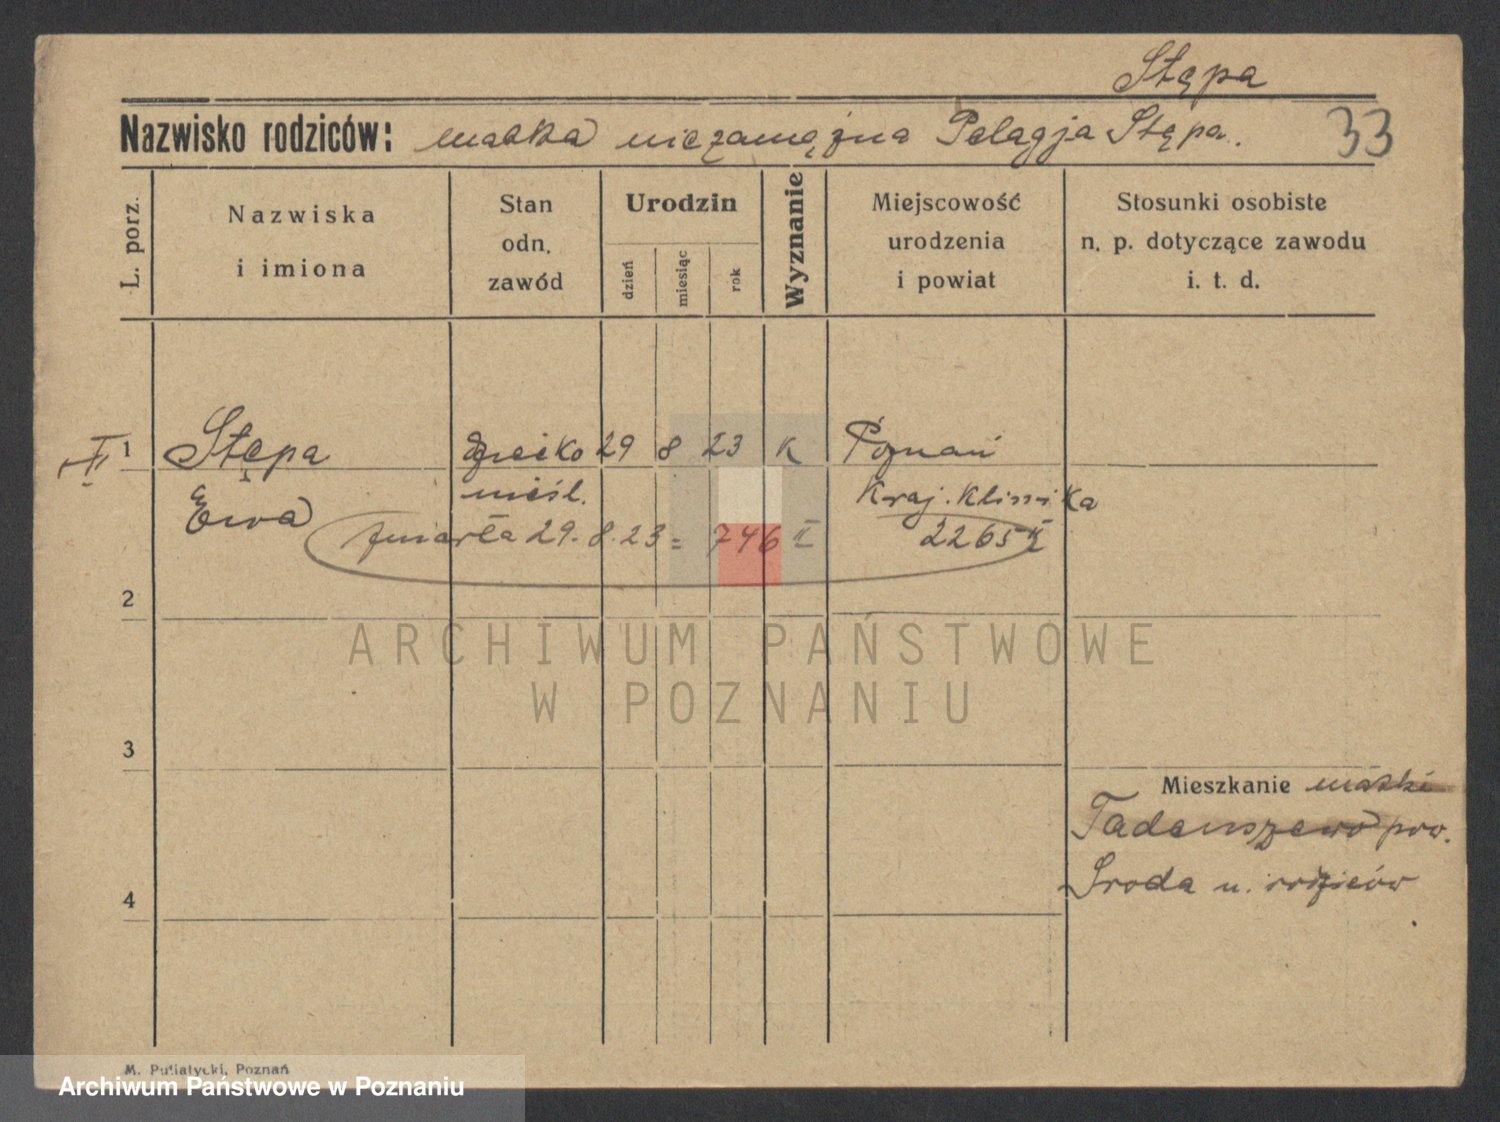 Stępa
Nazwisko rodziców: matka niezamężna Pelagja Stępa. 33
L. porz.
Nazwiska
i imiona
Stan
odn.
zawód
Urodzin
dzień
miesiąc
rok
Wyznanie
Miejscowość
urodzenia
i powiat
Stosunki osobiste
n. p. dotyczące zawodu
i. t. d.
1 Stępa dziecko 29 8 23 k Poznań
Ewa nieśl. Kraj. Klinika
zmarła 29. 8. 23 = 746 II 2265 II
2
3
4
Mieszkanie matki
Tadeuszewo pow.
Sroda u. rodziców
ARCHIWUM PAŃSTWOWE
W POZNANIU
M. Putiatycki, Poznań
Archiwum Państwowe w Poznaniu